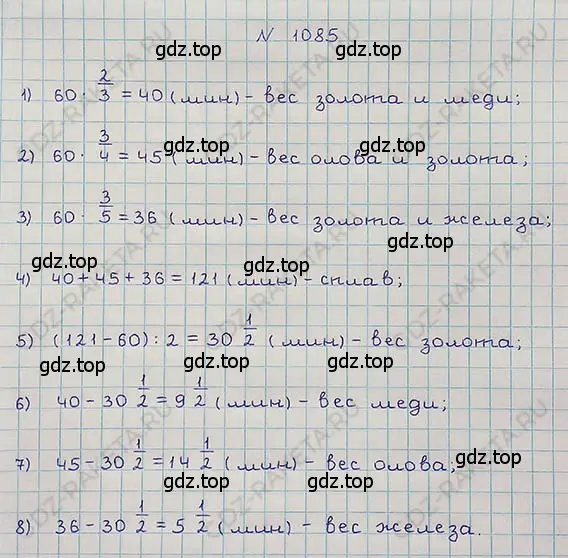 N 1085
gdz.top
1) 60 · 2/3 = 40 (мин) - вес золота и меди;
gdz.top
2) 60 · 3/4 = 45 (мин) - вес олова и золота;
gdz.top
3) 60 · 3/5 = 36 (мин) - вес золота и железа;
gdz.top gdz.top
4) 40 + 45 + 36 = 121 (мин) - сплав;
5) (121 - 60) : 2 = 30 1/2 (мин) - вес золота;
gdz.top gdz.top
6) 40 - 30 1/2 = 9 1/2 (мин) - вес меди;
7) 45 - 30 1/2 = 14 1/2 (мин) - вес олова;
gdz.top gdz.top
8) 36 - 30 1/2 = 5 1/2 (мин) - вес железа.
GDZ-RAKETA.RU